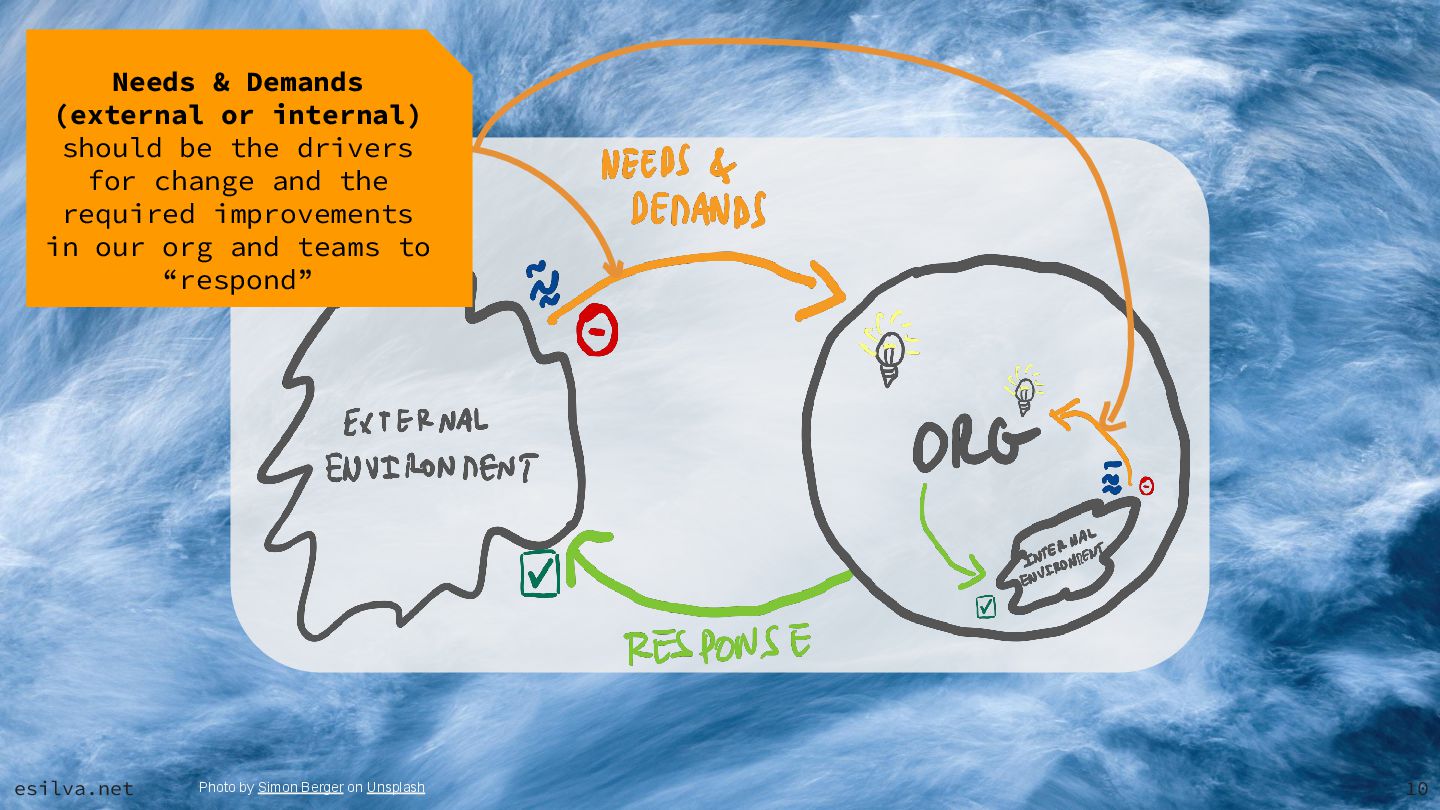 Needs & Demands
(external or internal)
should be the drivers
for change and the
required improvements
in our org and teams to
“respond”
NEEDS &
DEMANDS
EXTERNAL
ENVIRONMENT
ORG
INTERNAL
ENVIRONMENT
RESPONSE
esilva.net
Photo by Simon Berger on Unsplash
10